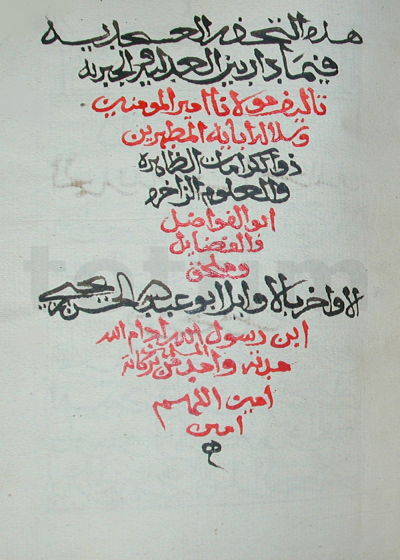 هذه التحفة العسجدية
فيما دار بين العدلية والجبرية
تاليف مولانا امير المومنين
وسلالة ابايه المطهرين
ذو الكرامات الظاهرة
والعلوم الزاخره
ابو الفواضل
والفضايل
وملحق
الاواخر بالاوايل ابو عبد الله الحسن بن يحيى
ابن رسول الله ادام الله
للمسلمين
مدته واعد من بركاته
امين اللهم
امين